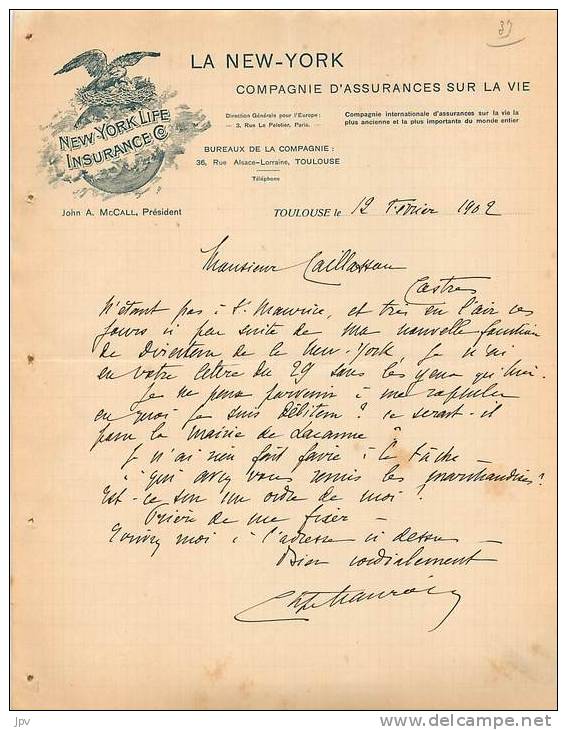 37
LA NEW-YORK
COMPAGNIE D'ASSURANCES SUR LA VIE
NEW-YORK LIFE
INSURANCE Cº
Direction Générale pour l'Europe :
— 3, Rue Le Peletier, Paris. —
Compagnie internationale d'assurances sur la vie la
plus ancienne et la plus importante du monde entier
BUREAUX DE LA COMPAGNIE :
36, Rue Alsace-Lorraine, TOULOUSE
Téléphone
John A. McCALL, Président
TOULOUSE le 12 Février 1902
Monsieur Caillassou
Castres
N'étant pas à St Maurice, et très en l'air ces
jours ci par suite de ma nouvelle fonction
de Directeur de la New-York je n'ai
eu votre lettre du 29 sous les yeux qu'hier.
Je ne peux parvenir à me rappeler
en quoi je suis débiteur ? ce serait-il
pour la Mairie de Lacaune ?
Je n'ai rien fait faire à la tâche —
à qui avez vous remis les marchandises ?
Est-ce sur un ordre de moi ?
Prière de me fixer —
Ecrivez moi à l'adresse ci dessus —
Bien cordialement
delcampe.net
JPV